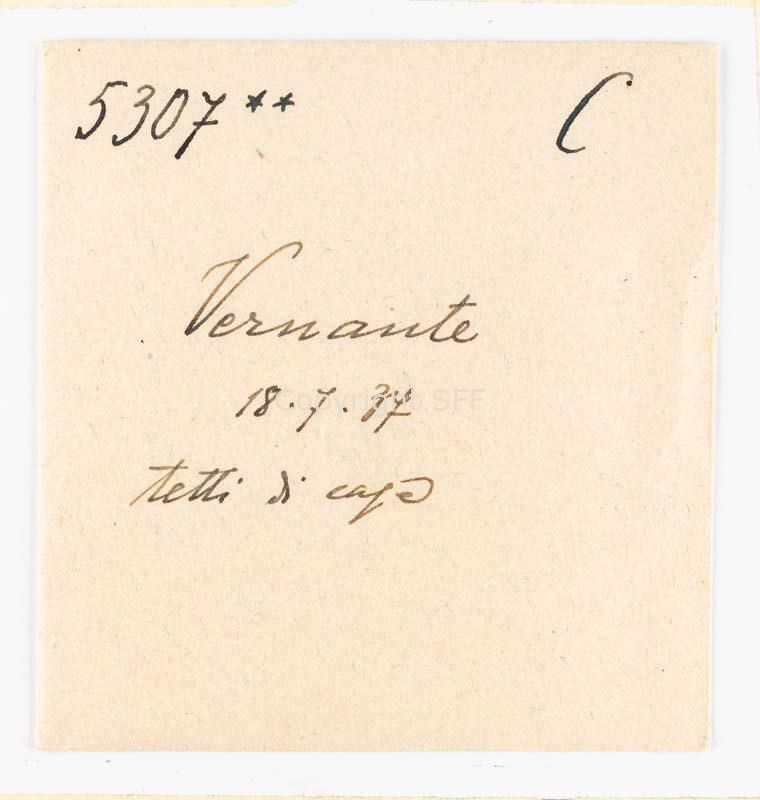 5307** C
Vernante
18.7.37
Copyright SFF
tetti di casa